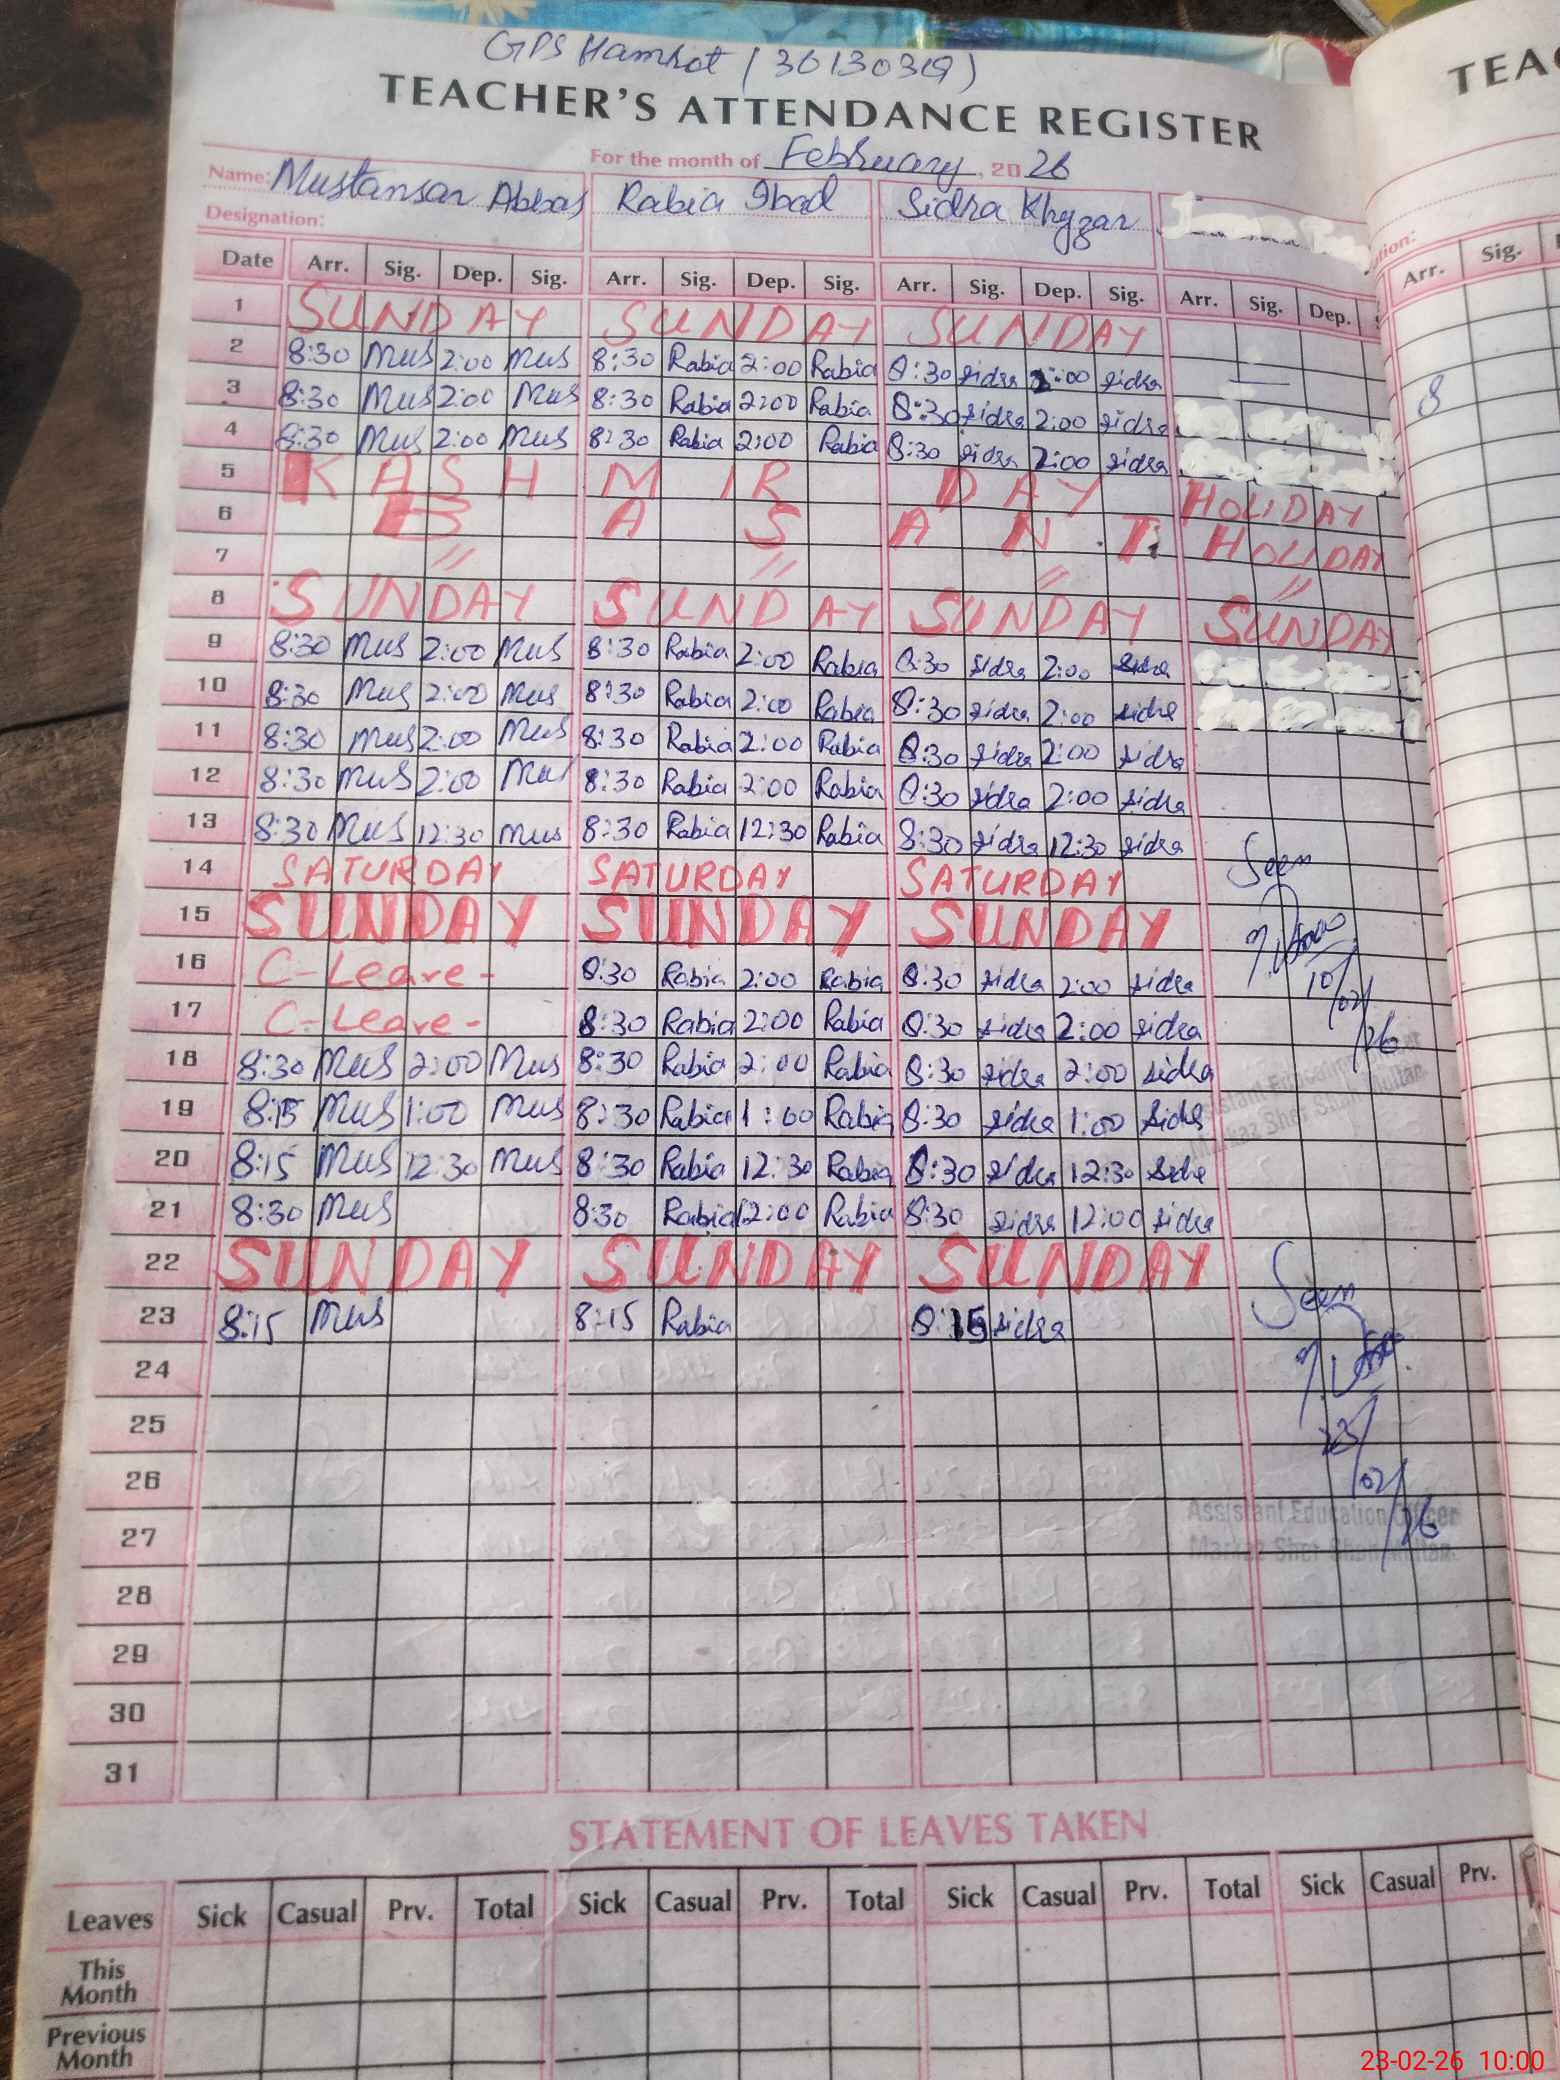 GPS Hamrot (36130319)
TEACHER'S ATTENDANCE REGISTER
For the month of February, 2026
Name: Mustansar Abbas Rabia Ibad Sidra Khyzar
Designation:
Date Arr. Sig. Dep. Sig. Arr. Sig. Dep. Sig. Arr. Sig. Dep. Sig. Arr. Sig. Dep.
1 SUNDAY SUNDAY SUNDAY
2 8:30 Mus 2:00 Mus 8:30 Rabia 2:00 Rabia 8:30 sidra 2:00 sidra
3 8:30 Mus 2:00 Mus 8:30 Rabia 2:00 Rabia 8:30 sidra 2:00 sidra
4 8:30 Mus 2:00 Mus 8:30 Rabia 2:00 Rabia 8:30 sidra 2:00 sidra
5 KASHMIR DAY HOLIDAY
6 BASANT HOLIDAY
7 " " " "
8 SUNDAY SUNDAY SUNDAY SUNDAY
9 8:30 Mus 2:00 Mus 8:30 Rabia 2:00 Rabia 8:30 sidra 2:00 sidra
10 8:30 Mus 2:00 Mus 8:30 Rabia 2:00 Rabia 8:30 sidra 2:00 sidra
11 8:30 Mus 2:00 Mus 8:30 Rabia 2:00 Rabia 8:30 sidra 2:00 sidra
12 8:30 Mus 2:00 Mus 8:30 Rabia 2:00 Rabia 8:30 sidra 2:00 sidra
13 8:30 Mus 12:30 Mus 8:30 Rabia 12:30 Rabia 8:30 sidra 12:30 sidra
14 SATURDAY SATURDAY SATURDAY Seen
15 SUNDAY SUNDAY SUNDAY
16 C-Leave- 8:30 Rabia 2:00 Rabia 8:30 sidra 2:00 sidra 10/02/26
17 C-Leave- 8:30 Rabia 2:00 Rabia 8:30 sidra 2:00 sidra
18 8:30 Mus 2:00 Mus 8:30 Rabia 2:00 Rabia 8:30 sidra 2:00 sidra
Assistant Education Officer
Markaz Sher Shah Multan
19 8:15 Mus 1:00 Mus 8:30 Rabia 1:00 Rabia 8:30 sidra 1:00 sidra
20 8:15 Mus 12:30 Mus 8:30 Rabia 12:30 Rabia 8:30 sidra 12:30 sidra
21 8:30 Mus 8:30 Rabia 12:00 Rabia 8:30 sidra 12:00 sidra
22 SUNDAY SUNDAY SUNDAY Seen
23 8:15 Mus 8:15 Rabia 8:15 sidra
24
25 23/02/26
26
Assistant Education Officer
27
Markaz Sher Shah Multan
28
29
30
31
STATEMENT OF LEAVES TAKEN
Leaves Sick Casual Prv. Total Sick Casual Prv. Total Sick Casual Prv. Total Sick Casual Prv.
This Month
Previous Month
Arr. Sig.
8
23-02-26 10:00